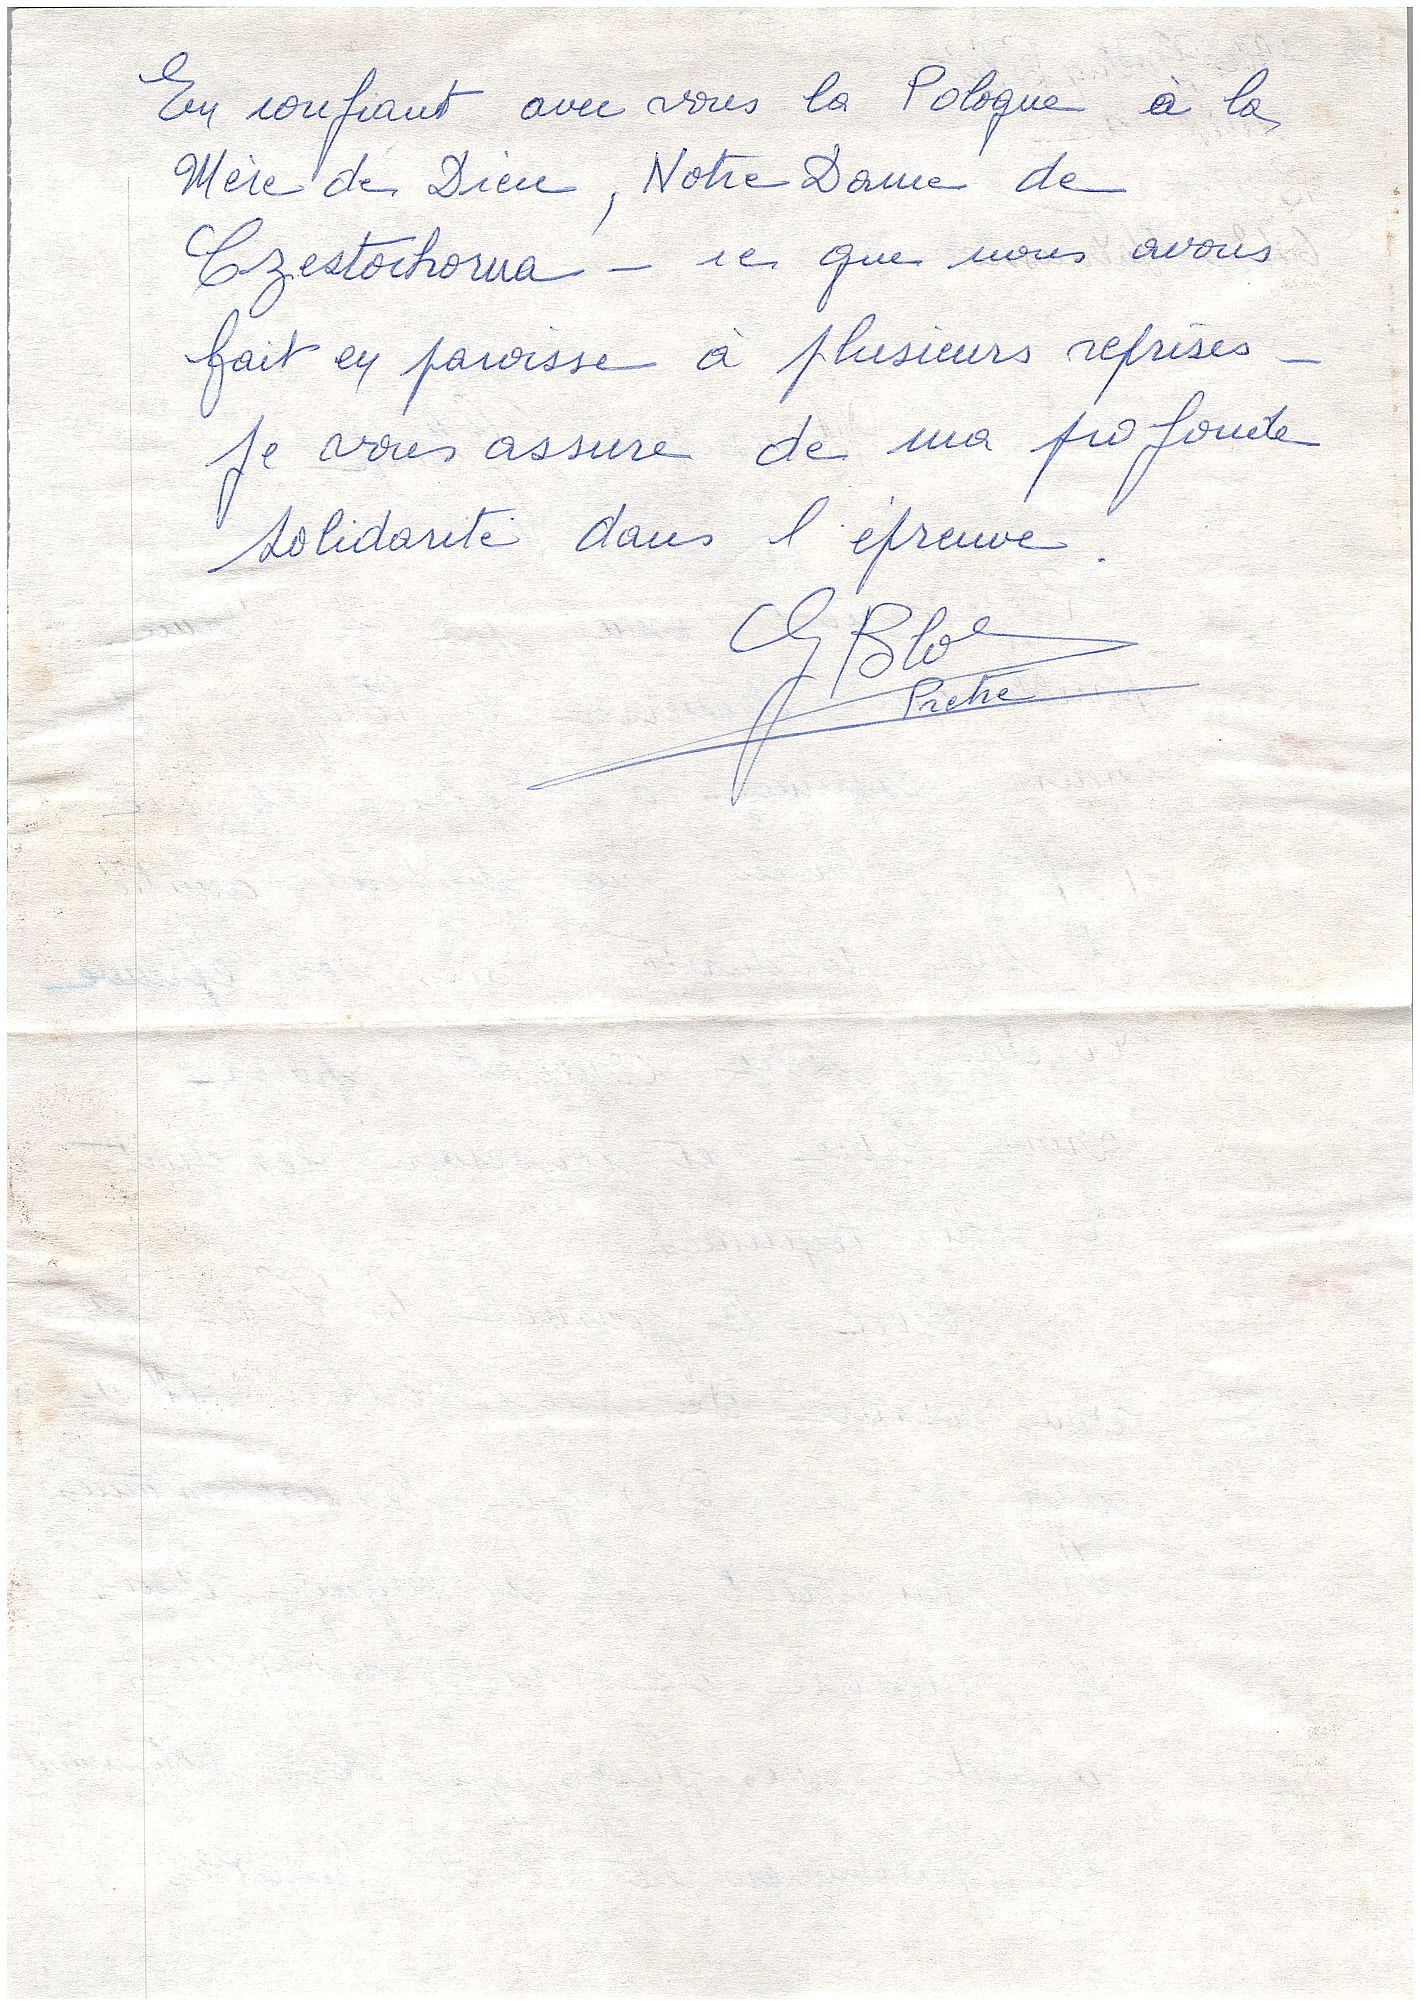 En confiant avec vous la Pologne à la
Mère de Dieu, Notre Dame de
Czestochowa - ce que nous avons
fait en paroisse à plusieurs reprises -
je vous assure de ma profonde
solidarité dans l'épreuve.
Prêtre